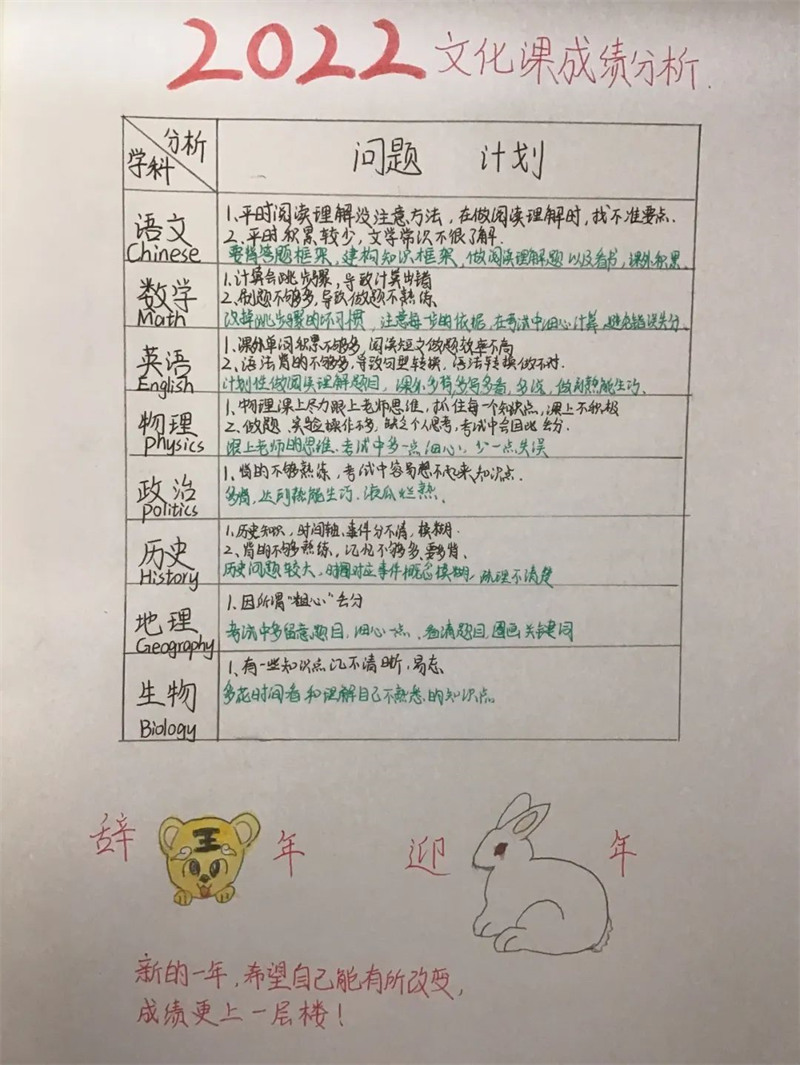 2022文化课成绩分析.
分析
学科
问题 计划
语文
Chinese
1、平时阅读理解没注意方法，在做阅读理解时，找不准要点.
2、平时积累较少，文学常识不很了解.
要背答题框架，建构知识框架，做阅读理解题以及看书，课外积累.
数学
Math
1、计算会跳步骤，导致计算出错
2、刷题不够多，导致做题不熟练.
改掉跳步骤的坏习惯，注意每步的依据，在考试中细心计算，避免错误失分.
英语
English
1、课外单词积累不够多，阅读短文做题效率不高
2、语法背的不够多，导致句型转换，语法转换做不对.
计划性做阅读理解题目，课外多背多写多看，多练，做到熟能生巧.
物理
physics
1、物理课上尽力跟上老师思维，抓住每一个知识点，课上不积极
2、做题、实验操作不多，缺乏个人思考，考试中会因此丢分.
跟上老师的思维.考试中多一点细心，少一点失误
政治
politics
1、背的不够熟练，考试中容易想不起来知识点.
多背，达到熟能生巧.滚瓜烂熟.
历史
History
1、历史知识，时间轴、事件分不清，模糊.
2、背的不够多熟练，记忆不够多、要多背.
历史问题较大，时间对应事件概念模糊，梳理不清楚
地理
Geography
1、因所谓“粗心”丢分
考试中多留意题目，细心一点、看清题目，圈画关键词
生物
Biology
1、有一些知识点记不清晰，易忘
多花时间看和理解自己不熟悉的知识点。
王
辞 年 迎 年
新的一年，希望自己能有所改变，
成绩更上一层楼！